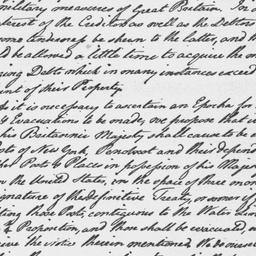 military measures of Great Britain. In
interest of the Creditors as well as the Debtors
some tenderness be shewn to the latter, and th
ld be allowed a little time to acquire the
ing Debt which in many instances exceed
nt of their Property.
As it is necessary to ascertain an Epocha for
& Evacuations to be made, we propose that
his Britannic Majesty, shall cause to be
sts of New York, Penobscot and their depend
other Post & Places in possession of his Majes
in the United States, in the space of three mon
signature of the definitive Treaty, or sooner if
ting those Posts, contiguous to the Water Line
& Proposition, and those shall be evacuated,
ive the notice therein mentioned. We do ourse